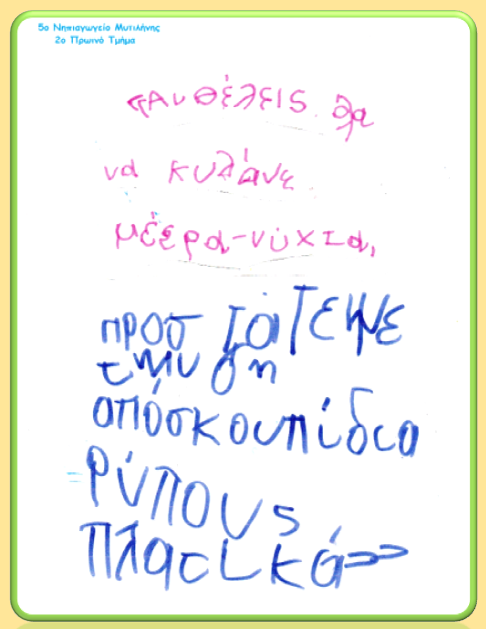 5ο Νηπιαγωγείο Μυτιλήνης
2ο Πρωινό Τμήμα
«Αν θέλεις όλα
να κυλάνε
μέερα-νύχτα,
προστάτεψε
την γη
απόσκουπίδια
Ρύπους
πλαστικά»